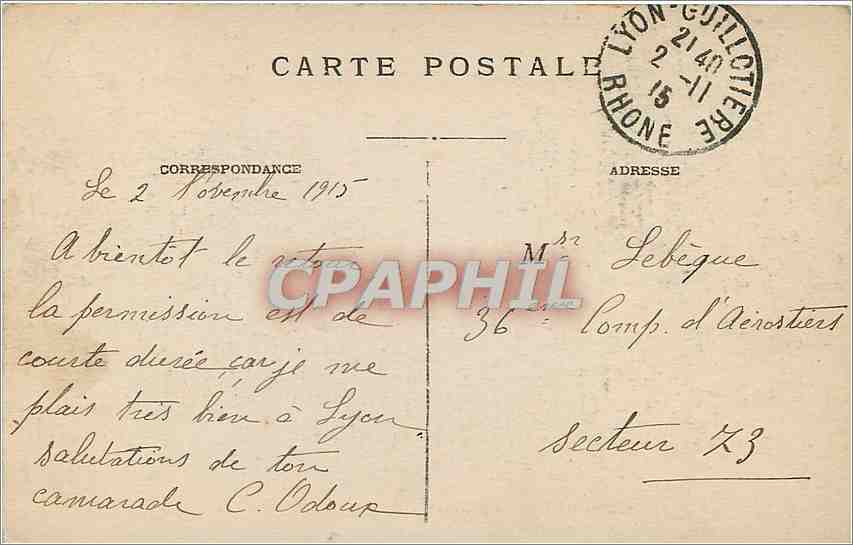 CARTE POSTALE
LYON-GUILLOTIERE
21 40
2 -11
15
RHONE
CORRESPONDANCE
Le 2 Novembre 1915
A bientôt le retour
la permission est de
courte durée car je me
plais très bien à Lyon
salutations de ton
camarade C. Odoux
ADRESSE
Msr Lebèque
36ème Comp. d'Aérostiers
secteur 73
CPAPHIL